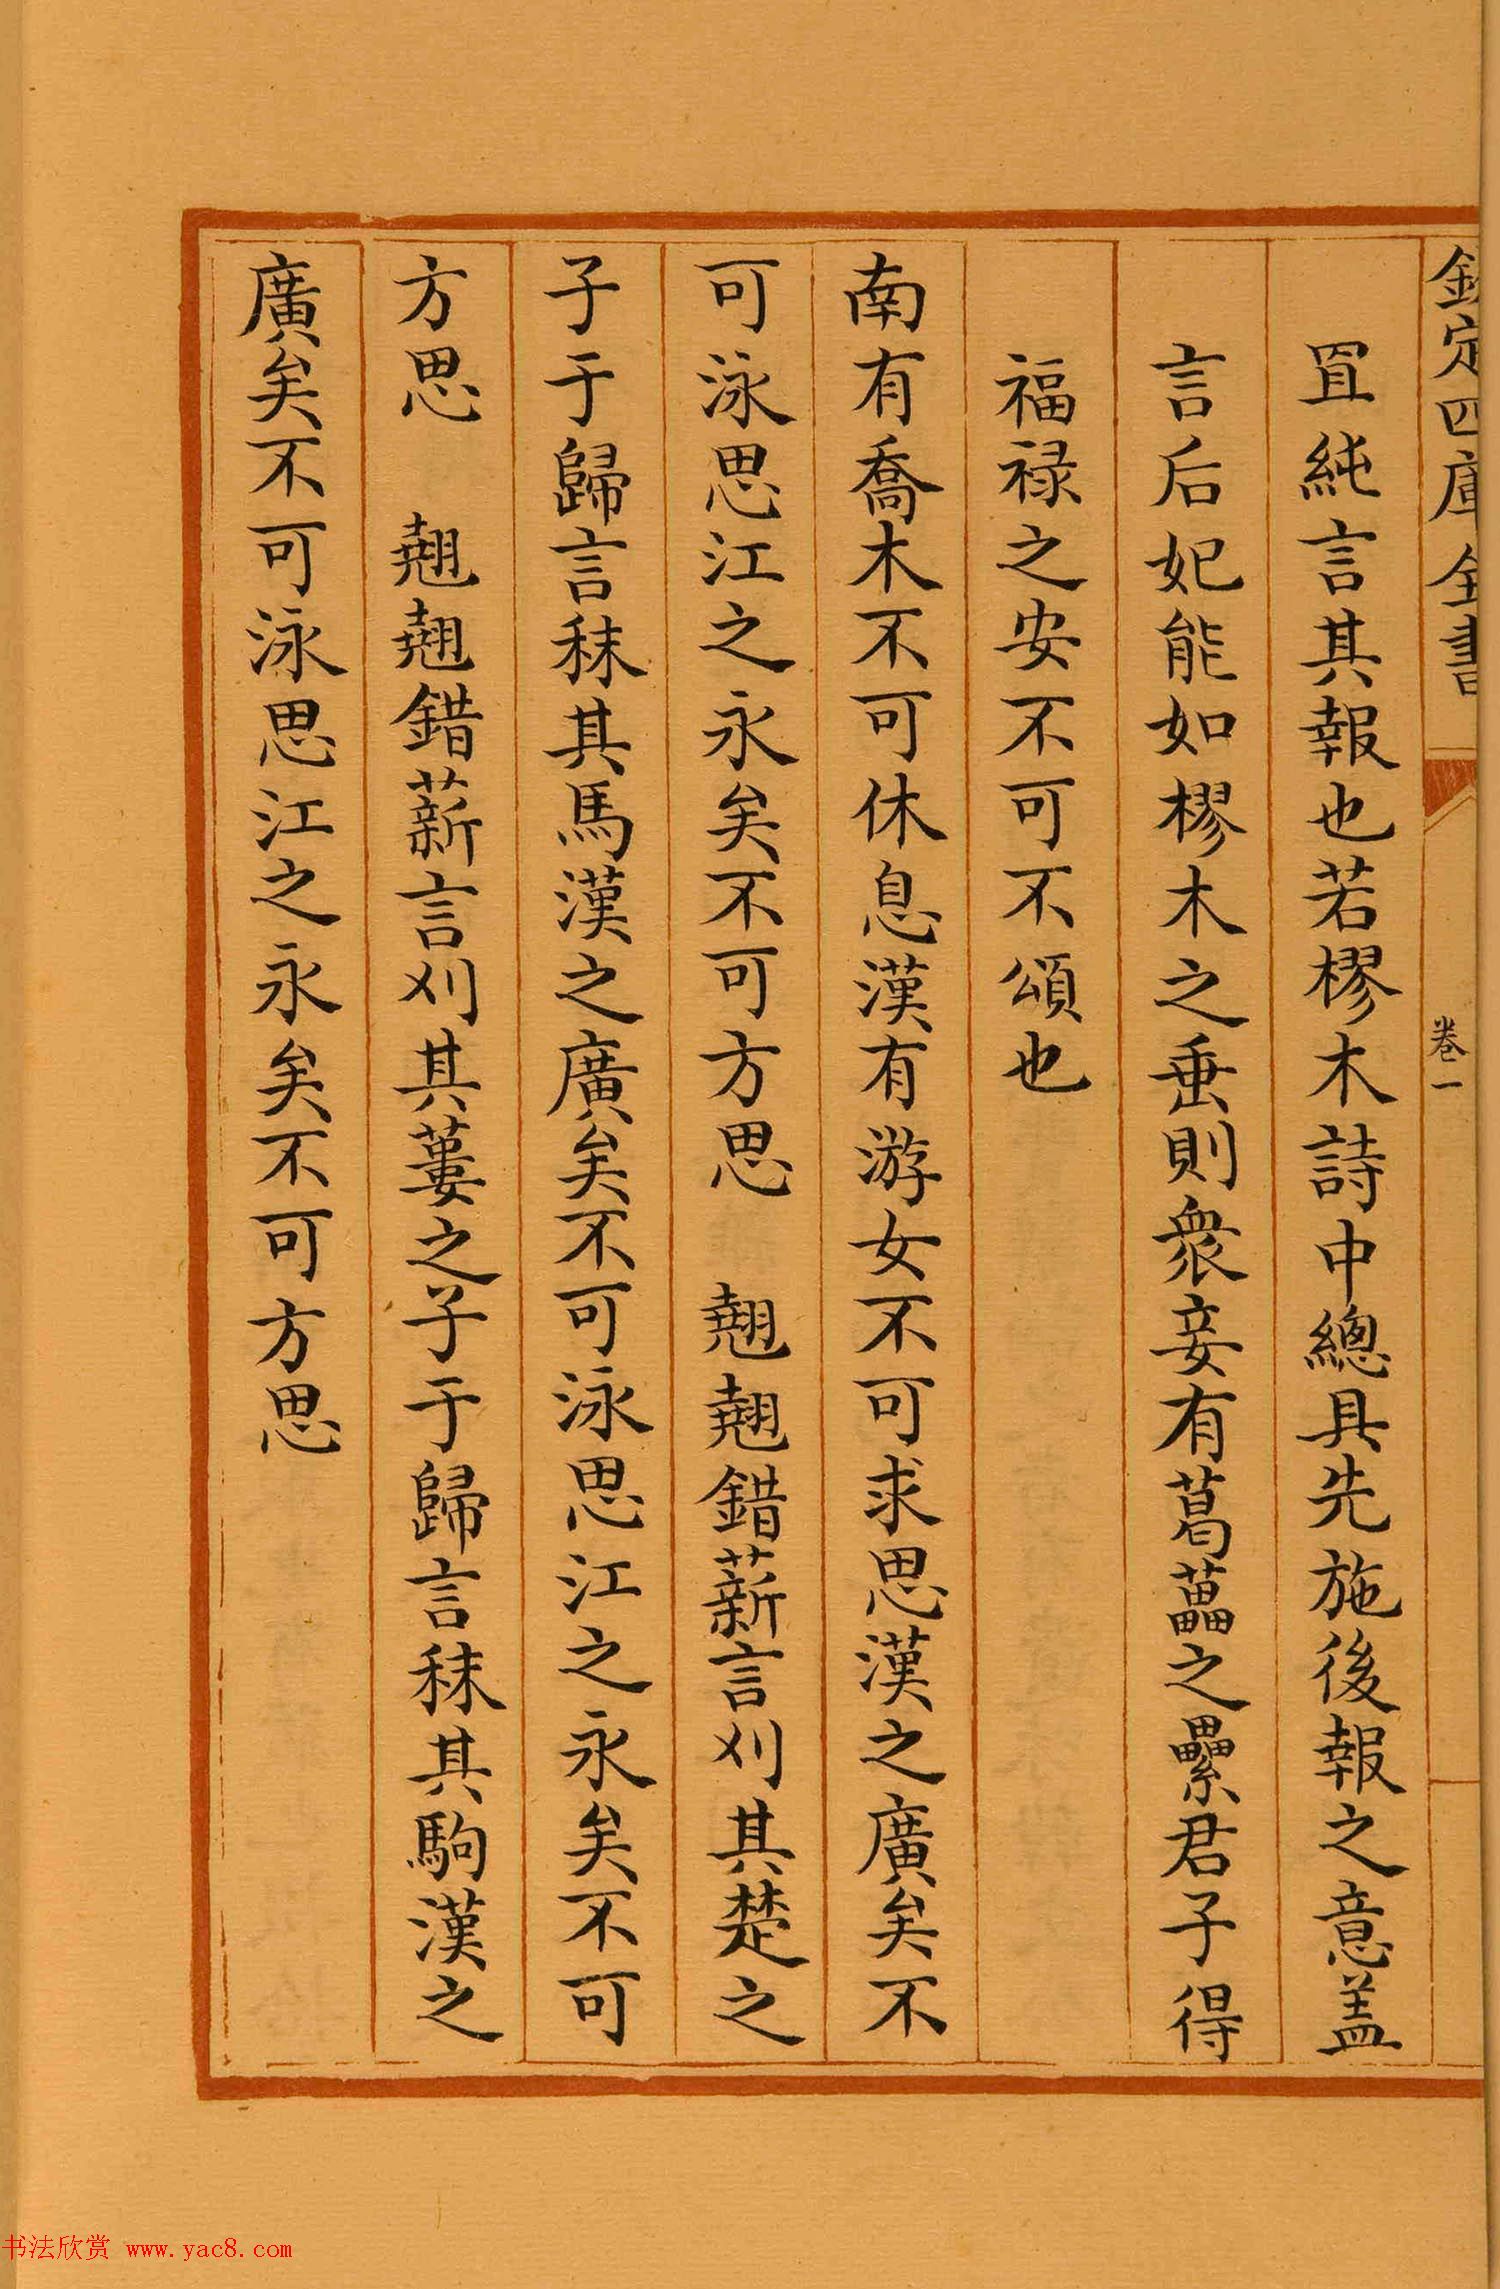 欽定四庫全書
卷一
罝純言其報也若樛木詩中總具先施後報之意蓋
言后妃能如樛木之垂則衆妾有葛藟之纍君子得
福禄之安不可不頌也
南有喬木不可休息漢有游女不可求思漢之廣矣不
可泳思江之永矣不可方思 翹翹錯薪言刈其楚之
子于歸言秣其馬漢之廣矣不可泳思江之永矣不可
方思 翹翹錯薪言刈其蔞之子于歸言秣其駒漢之
廣矣不可泳思江之永矣不可方思
书法欣赏 www.yac8.com